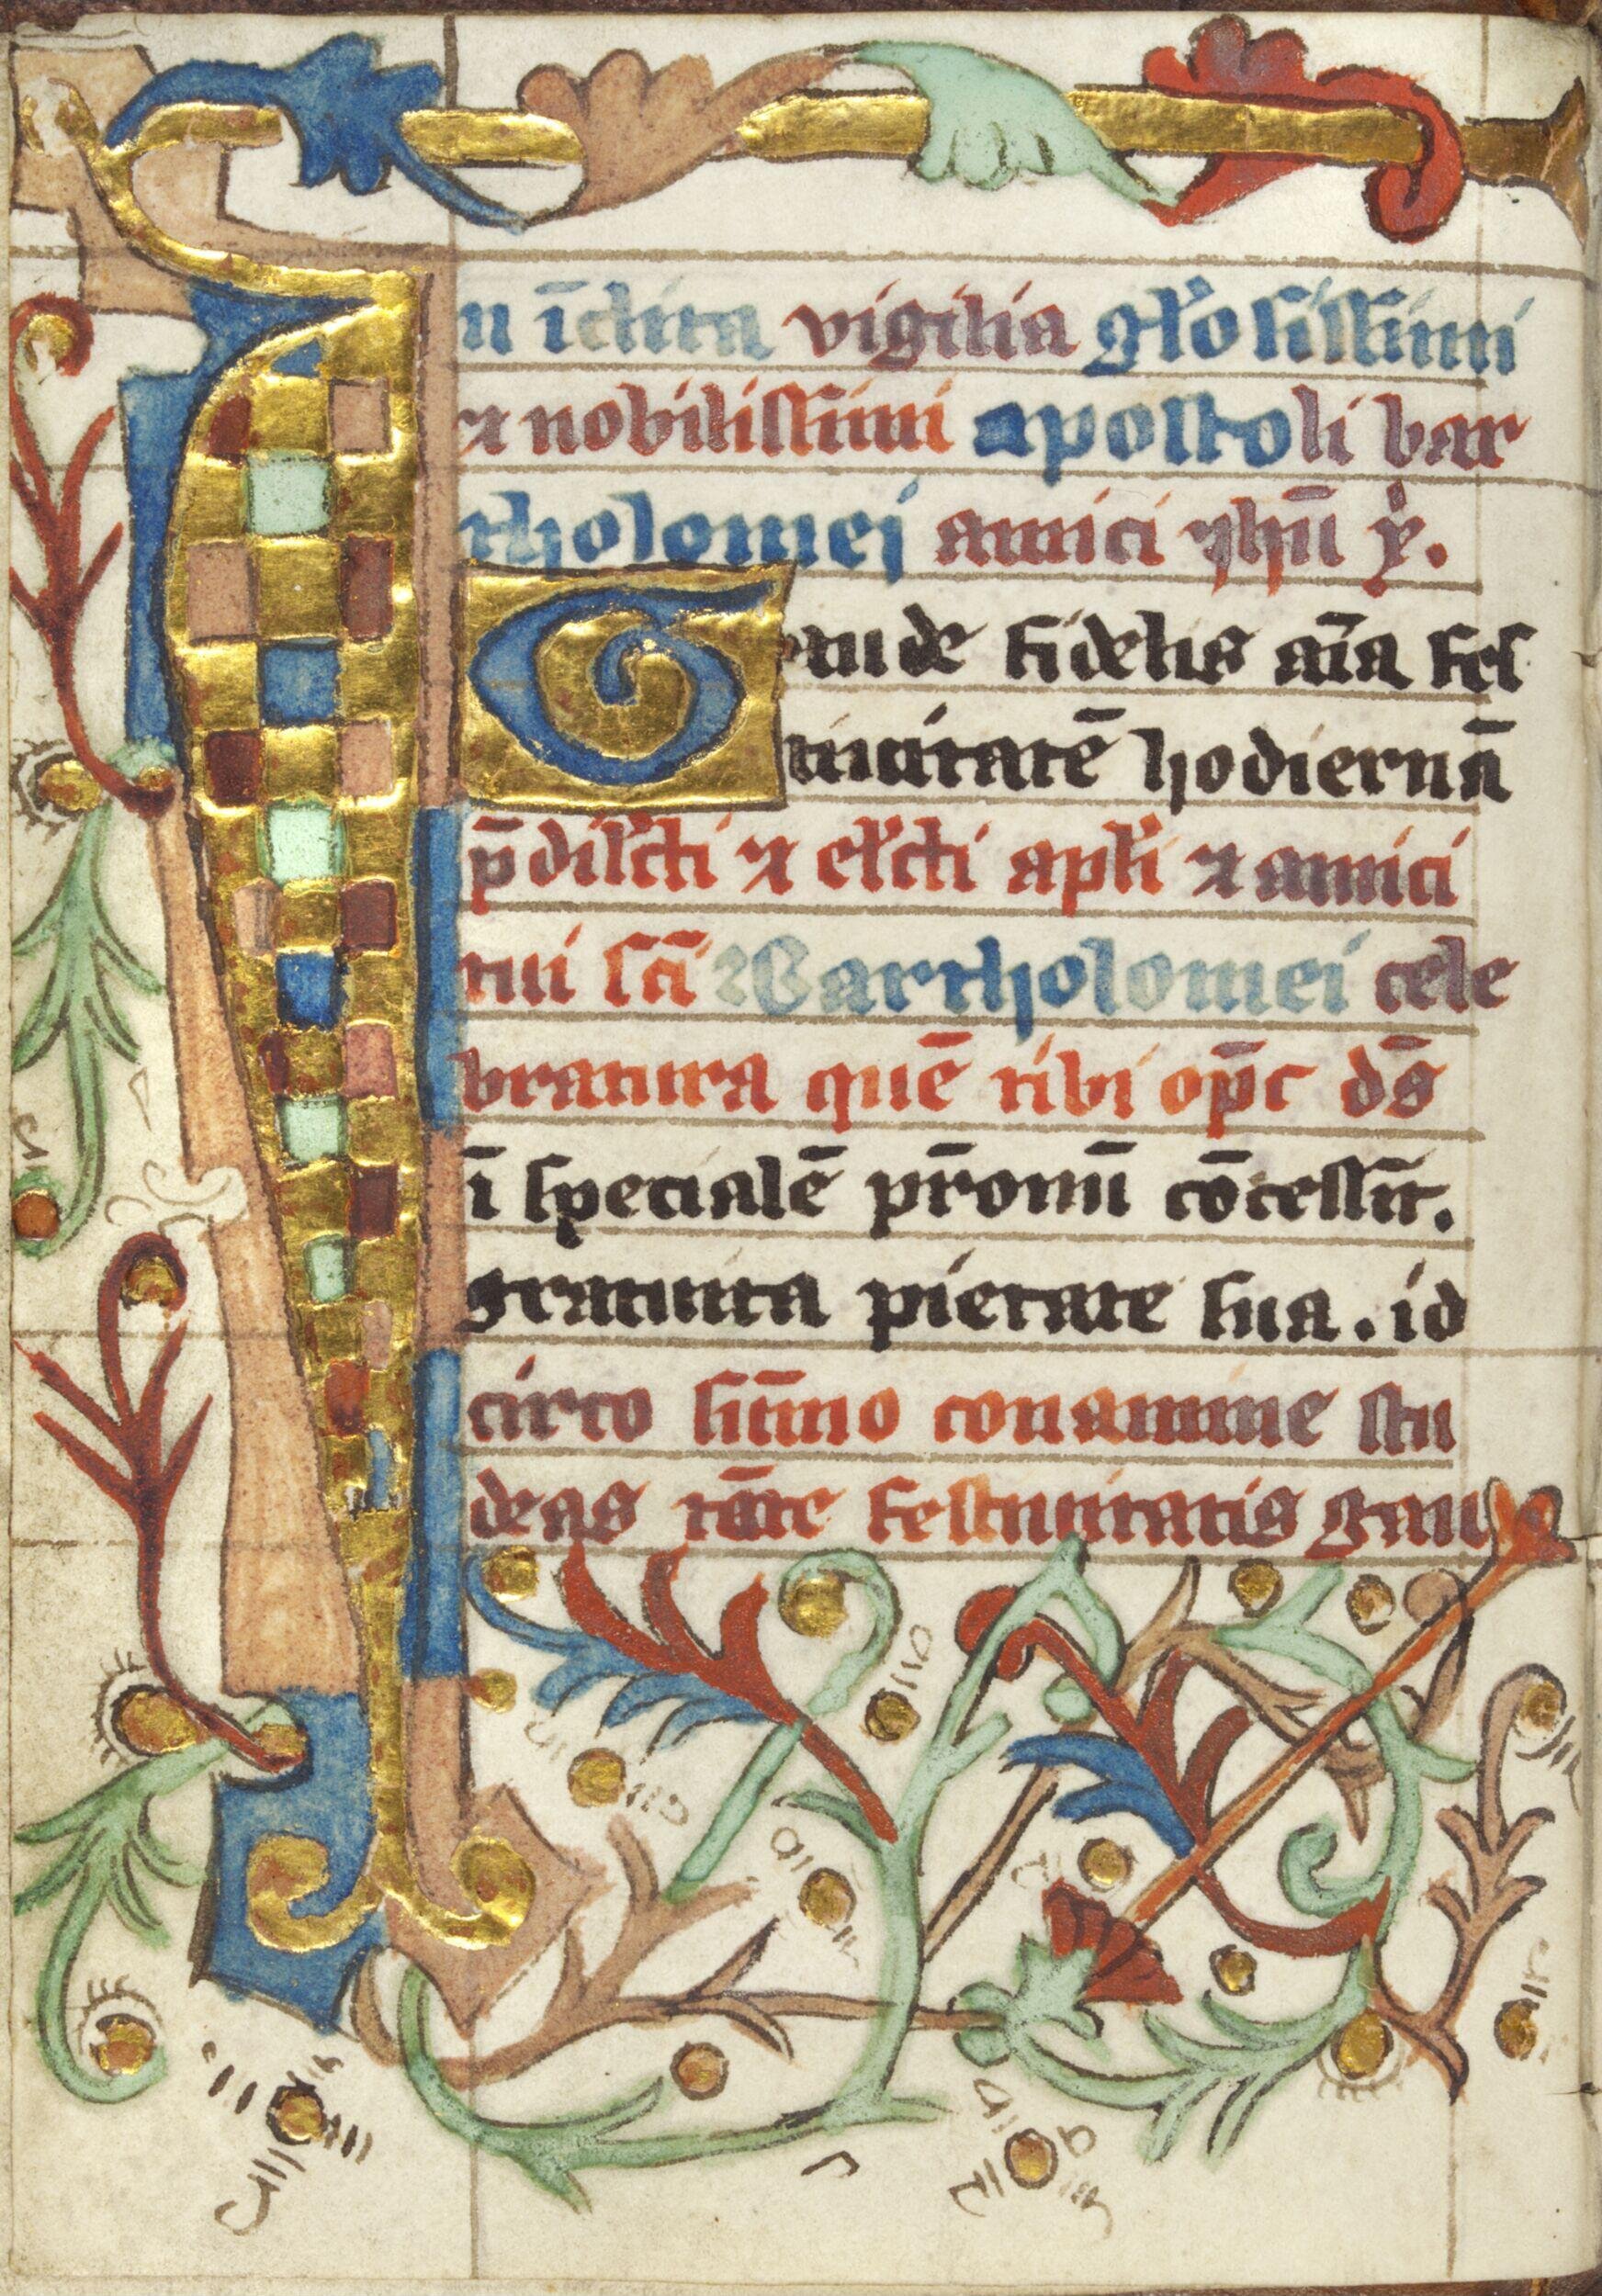 In īclita vigilia gl'osissimi
et nobilissimi apostoli bar
tholomei amici yhū xp̄i.
Gaude fidelis aīa fes
tiuitatē hodiernā
p̄dil'cti et el'cti apl'i et amici
tui sc̄i Bartholomei cele
bratura quē tibi op̄c ds̄
ī specialē pr̄onū cōcessit.
gratuita pietate sua. id
circo sūmo conamine stu
deas tāte festiuitatis gau